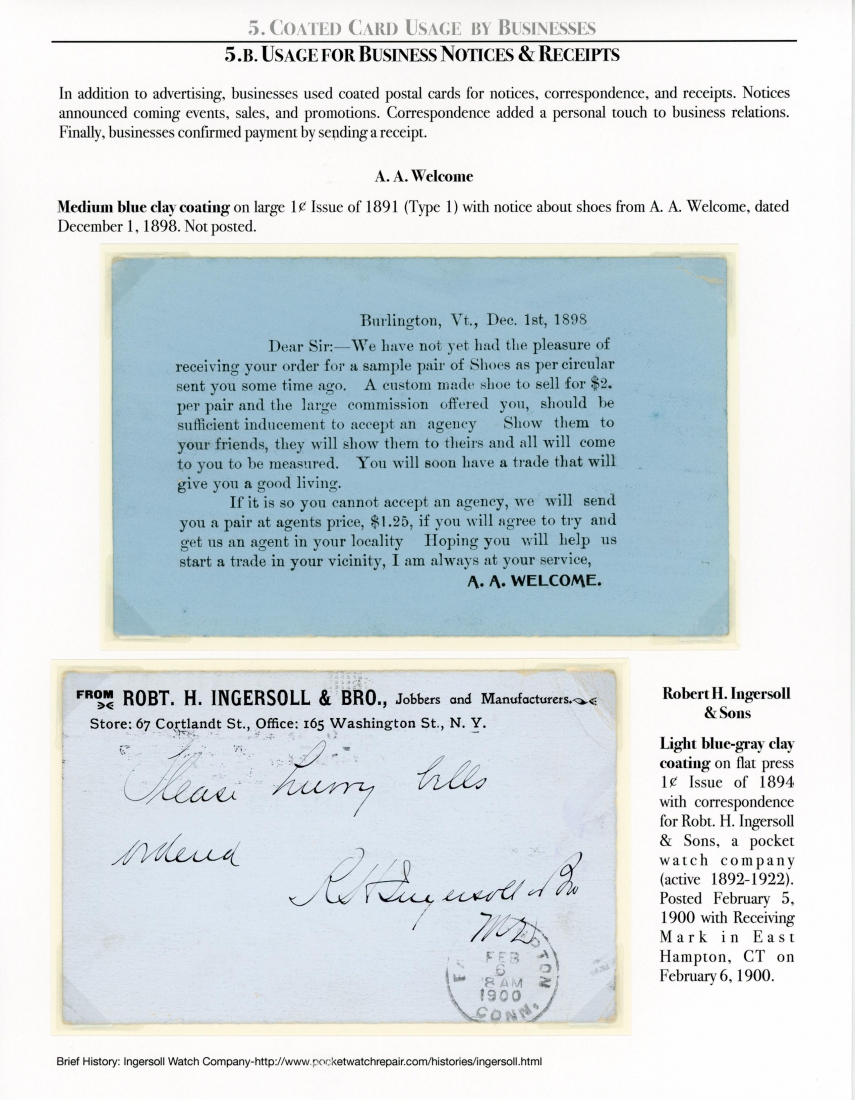 5. Coated Card Usage by Businesses
5.b. Usage for Business Notices & Receipts
In addition to advertising, businesses used coated postal cards for notices, correspondence, and receipts. Notices
announced coming events, sales, and promotions. Correspondence added a personal touch to business relations.
Finally, businesses confirmed payment by sending a receipt.
A. A. Welcome
Medium blue clay coating on large 1¢ Issue of 1891 (Type 1) with notice about shoes from A. A. Welcome, dated
December 1, 1898. Not posted.
Burlington, Vt., Dec. 1st, 1898
Dear Sir:—We have not yet had the pleasure of
receiving your order for a sample pair of Shoes as per circular
sent you some time ago. A custom made shoe to sell for $2.
per pair and the large commission offered you, should be
sufficient inducement to accept an agency Show them to
your friends, they will show them to theirs and all will come
to you to be measured. You will soon have a trade that will
give you a good living.
If it is so you cannot accept an agency, we will send
you a pair at agents price, $1.25, if you will agree to try and
get us an agent in your locality Hoping you will help us
start a trade in your vicinity, I am always at your service,
A. A. WELCOME.
FROM ROBT. H. INGERSOLL & BRO., Jobbers and Manufacturers.
Store: 67 Cortlandt St., Office: 165 Washington St., N. Y.
Please hurry bells
ordered
R H Ingersoll & Bro
FEB
6
8 AM
1900
CONN.
Robert H. Ingersoll
& Sons
Light blue-gray clay
coating on flat press
1¢ Issue of 1894
with correspondence
for Robt. H. Ingersoll
& Sons, a pocket
watch company
(active 1892-1922).
Posted February 5,
1900 with Receiving
Mark in East
Hampton, CT on
February 6, 1900.
Brief History: Ingersoll Watch Company-http://www.pocketwatchrepair.com/histories/ingersoll.html